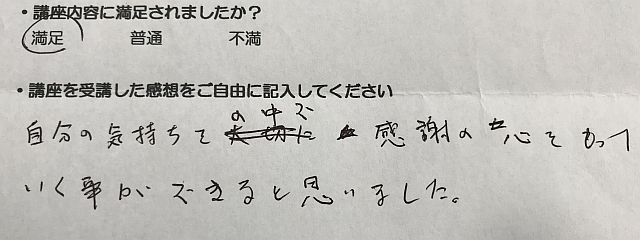 ・講座内容に満足されましたか？
満足 普通 不満
・講座を受講した感想をご自由に記入してください
自分の気持ちの中で感謝の心をもって
いく事ができると思いました。